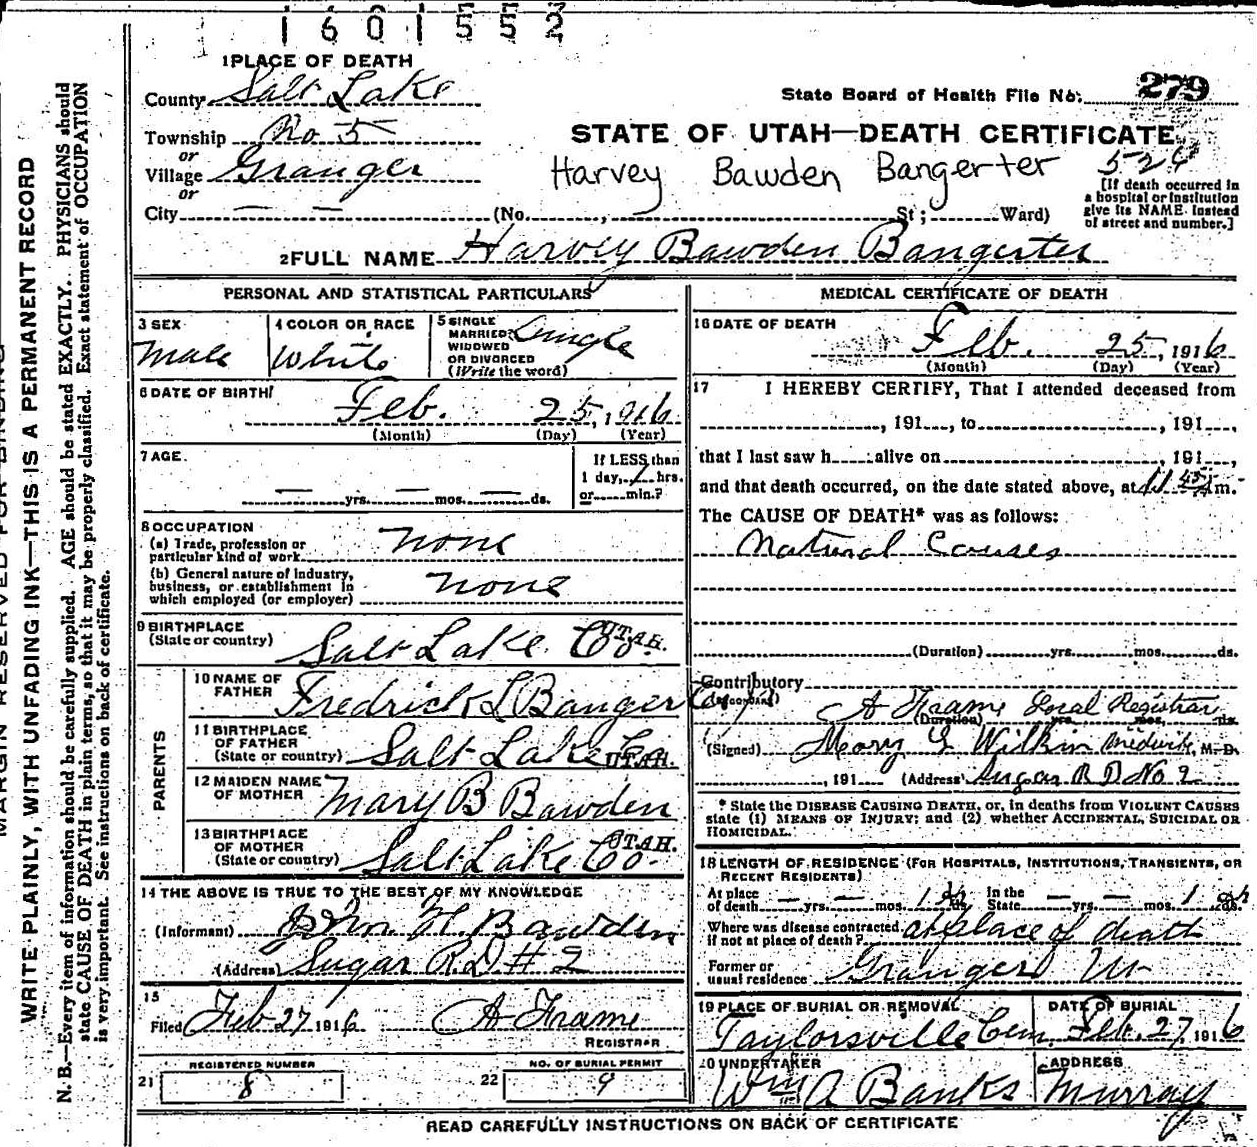 1601552
1 PLACE OF DEATH
County Salt Lake
State Board of Health File No. 279
Township No 5
or
STATE OF UTAH—DEATH CERTIFICATE
Village Granger
Harvey Bawden Bangerter
or
City — — (No. , St; Ward)
[If death occurred in
a hospital or institution
give its NAME instead
of street and number.]
2 FULL NAME Harvey Bawden Bangerter
PERSONAL AND STATISTICAL PARTICULARS
3 SEX
Male
4 COLOR OR RACE
White
5 SINGLE
MARRIED
WIDOWED
OR DIVORCED
(Write the word)
Single
6 DATE OF BIRTH
Feb. 25, 1916
(Month) (Day) (Year)
7 AGE
— yrs. — mos. — ds.
If LESS than
1 day, 1 hrs.
or min.?
8 OCCUPATION
(a) Trade, profession or
particular kind of work none
(b) General nature of industry,
business, or establishment in
which employed (or employer) none
9 BIRTHPLACE
(State or country) Salt Lake Co UTAH.
PARENTS
10 NAME OF
FATHER Fredrick L Bangerter
11 BIRTHPLACE
OF FATHER
(State or country) Salt Lake Co UTAH.
12 MAIDEN NAME
OF MOTHER Mary B Bawden
13 BIRTHPLACE
OF MOTHER
(State or country) Salt Lake Co. UTAH.
14 THE ABOVE IS TRUE TO THE BEST OF MY KNOWLEDGE
(Informant) John H. Bawden
(Address) Sugar R.D. # 2
15
Filed Feb 27 1916 A Frame
REGISTRAR
REGISTERED NUMBER
21 8
NO. OF BURIAL PERMIT
22 9
MEDICAL CERTIFICATE OF DEATH
16 DATE OF DEATH
Feb. 25, 1916
(Month) (Day) (Year)
17 I HEREBY CERTIFY, That I attended deceased from
, 191 , to , 191 ,
that I last saw h alive on , 191 ,
and that death occurred, on the date stated above, at 11 45 m.
The CAUSE OF DEATH* was as follows:
Natural Causes
(Duration) yrs. mos. ds.
Contributory
(Secondary)
A Frame Local Registrar
(Duration) yrs. mos. ds.
(Signed) Mary E Wilkin Midwife, M.D.
, 191 (Address) Sugar R D No 2
* State the DISEASE CAUSING DEATH, or, in deaths from VIOLENT CAUSES
state (1) MEANS OF INJURY; and (2) whether ACCIDENTAL, SUICIDAL OR
HOMICIDAL.
18 LENGTH OF RESIDENCE (FOR HOSPITALS, INSTITUTIONS, TRANSIENTS, OR
RECENT RESIDENTS)
At place
of death — yrs. — mos. 1 In the
State — yrs. — mos. 1
Where was disease contracted
if not at place of death? at place of death
Former or
usual residence Granger Ut
19 PLACE OF BURIAL OR REMOVAL
Taylorsville Cem
DATE OF BURIAL
Feb. 27, 1916
20 UNDERTAKER
Wm A Banks
ADDRESS
Murray
READ CAREFULLY INSTRUCTIONS ON BACK OF CERTIFICATE
MARGIN RESERVED FOR BINDING
WRITE PLAINLY, WITH UNFADING INK—THIS IS A PERMANENT RECORD
N. B.—Every item of information should be carefully supplied. AGE should be stated EXACTLY. PHYSICIANS should
state CAUSE OF DEATH in plain terms, so that it may be properly classified. Exact statement of OCCUPATION
is very important. See instructions on back of certificate.